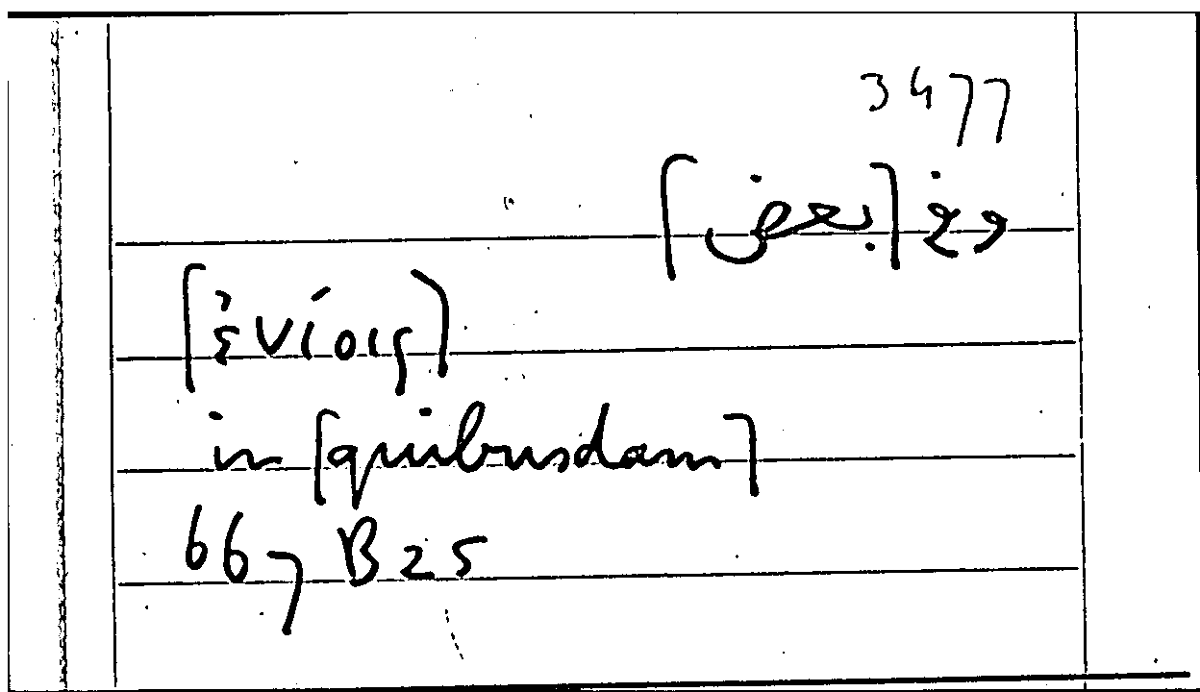 3477
وفى [بعض]
[ἐνίοις]
in [quibusdam]
667 B 25